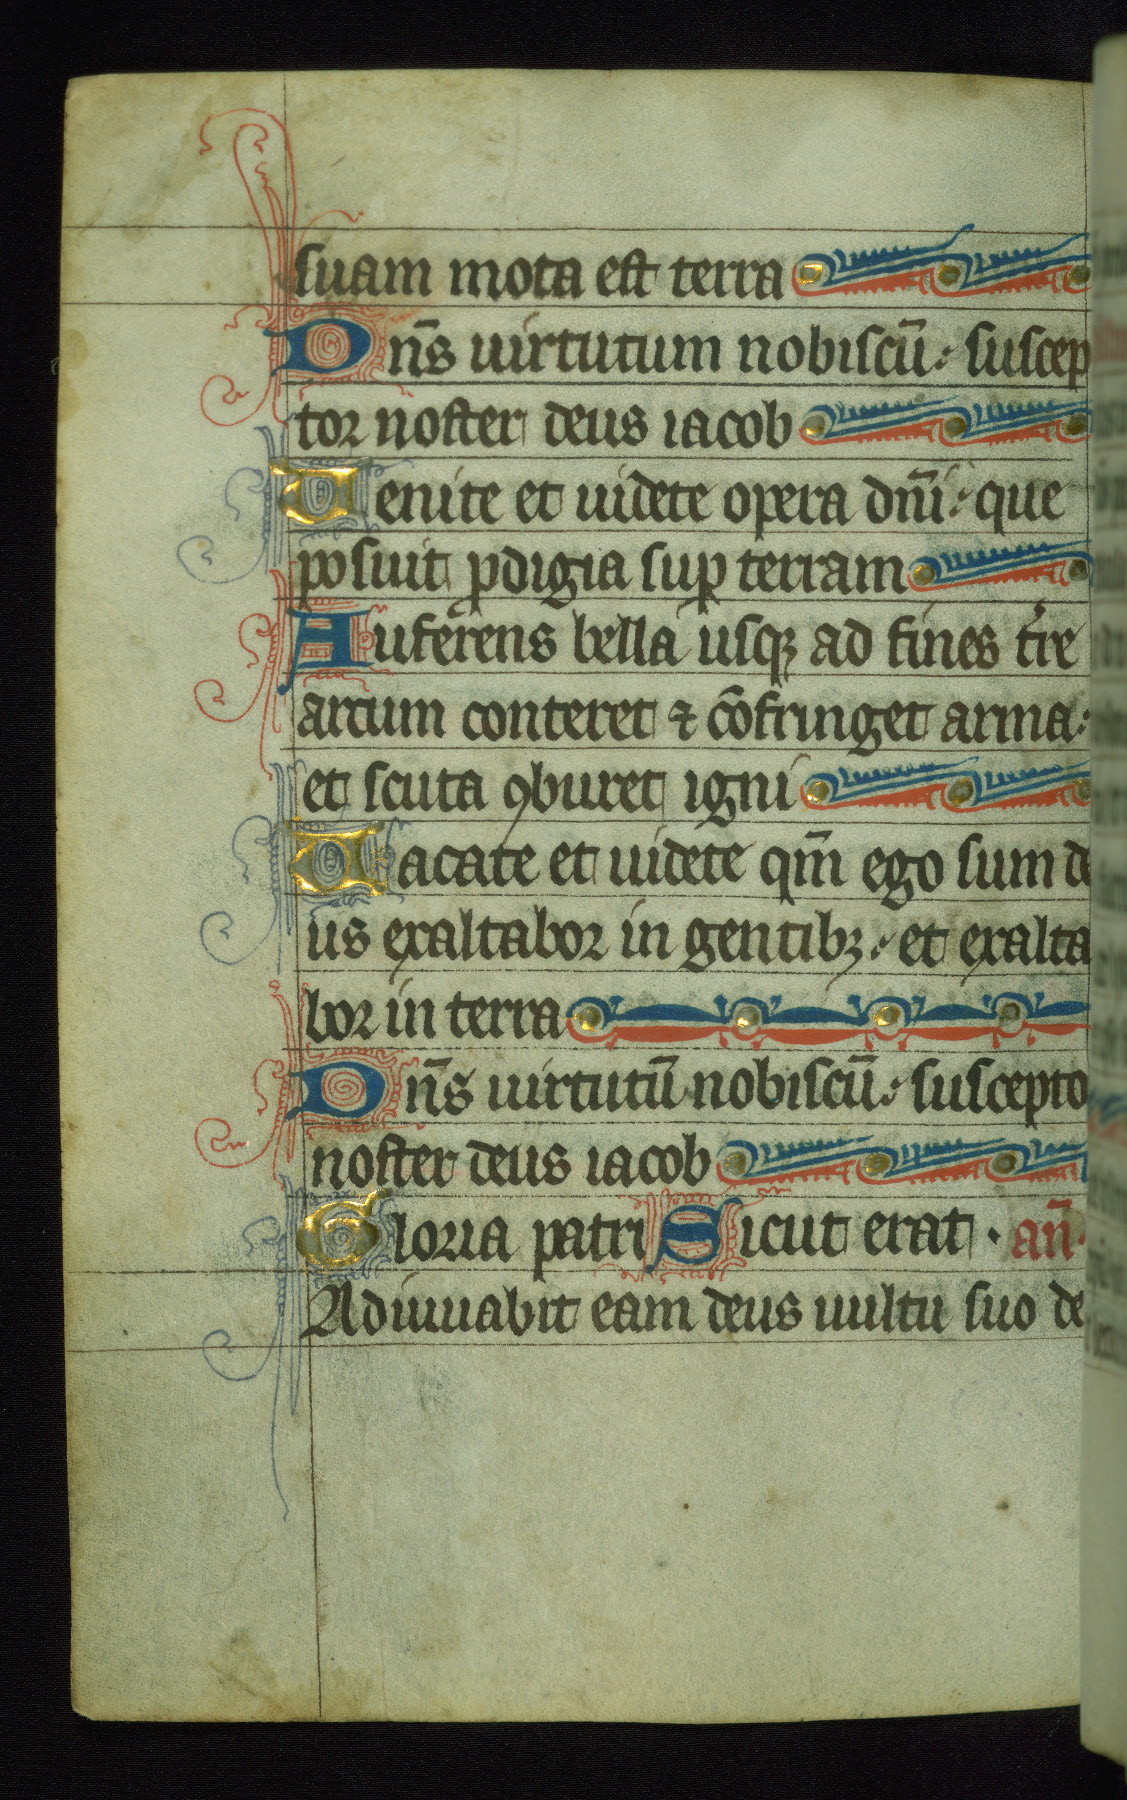 suam mota est terra
Dn̄s uirtutum nobiscū: suscep
tor noster deus iacob
Uenite et uidete opera dn̄i: que
posuit ꝓdigia suꝑ terram
Auferens bella usqꝫ ad fines tr̄re
arcum conteret ⁊ cōfringet arma:
et scuta ꝯburet igni
Uacate et uidete qm̄ ego sum de
us exaltabor in gentibꝫ: et exalta
bor in terra
Dn̄s uirtutū nobiscū: suscepto
noster deus iacob
Gloria patri Sicut erat · an̄·
Adiuuabit eam deus uultu suo de